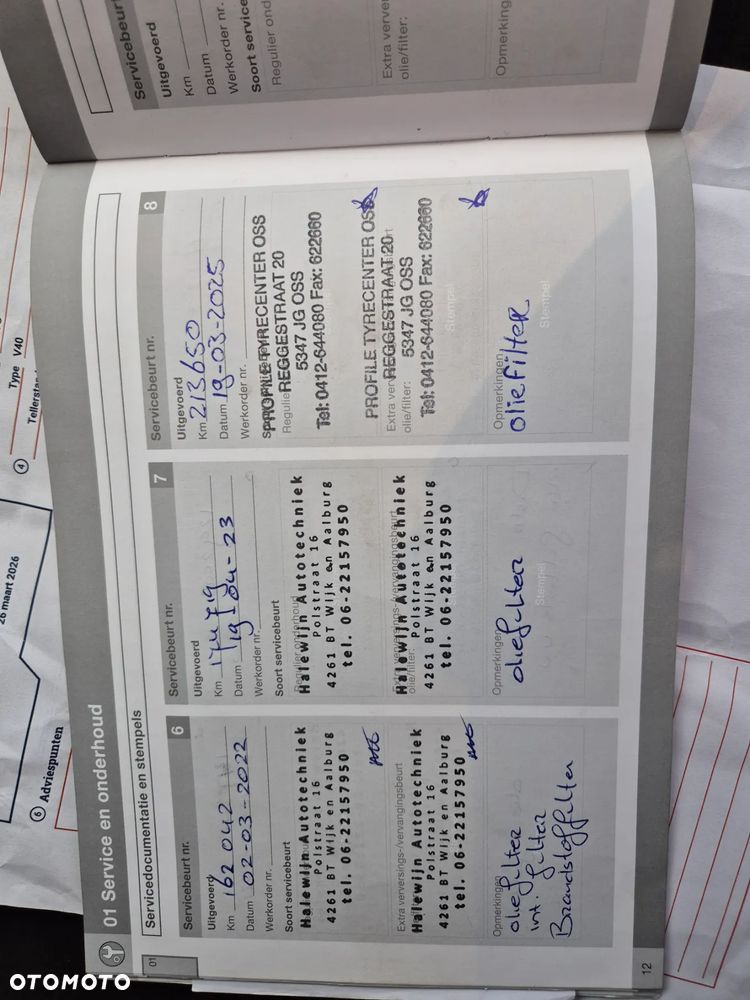 01 Service en onderhoud
Servicedocumentatie en stempels
01
Servicebeurt nr. 6
Uitgevoerd
Km 162 042
Datum 02-03-2022
Werkorder nr.
Soort servicebeurt
Halewijn Autotechniek
Polstraat 16
4261 BT Wijk en Aalburg
tel. 06-22157950
Extra verversings-/vervangingsbeurt
Halewijn Autotechniek
Polstraat 16
4261 BT Wijk en Aalburg
tel. 06-22157950
Opmerkingen
oliefilter
int. filter
Brandstoffilter
12
Servicebeurt nr. 7
Uitgevoerd
Km
Datum 19-04-23
Werkorder nr.
Soort servicebeurt
Regulier onderhoud
Halewijn Autotechniek
Polstraat 16
4261 BT Wijk en Aalburg
tel. 06-22157950
Extra verversings-/vervangingsbeurt
olie/filter:
Halewijn Autotechniek
Polstraat 16
4261 BT Wijk en Aalburg
tel. 06-22157950
Opmerkingen
oliefilter
Stempel
Servicebeurt nr. 8
Uitgevoerd
Km 213650
Datum 19-03-2025
Werkorder nr.
PROFILE TYRECENTER OSS
Regulier
REGGESTRAAT 20
5347 JG OSS
Tel: 0412-644080 Fax: 622660
PROFILE TYRECENTER OSS
Extra
REGGESTRAAT 20
olie/filter:
5347 JG OSS
Tel: 0412-644080 Fax: 622660
Stempel
Opmerkingen
oliefilter
Stempel
Servicebeurt
Uitgevoerd
Km
Datum
Werkorder nr.
Soort service
Regulier ond
Extra verver
olie/filter:
Opmerking
Type V40
4
Tellerstan
26 maart 2026
6 Adviespunten
OTOMOTO